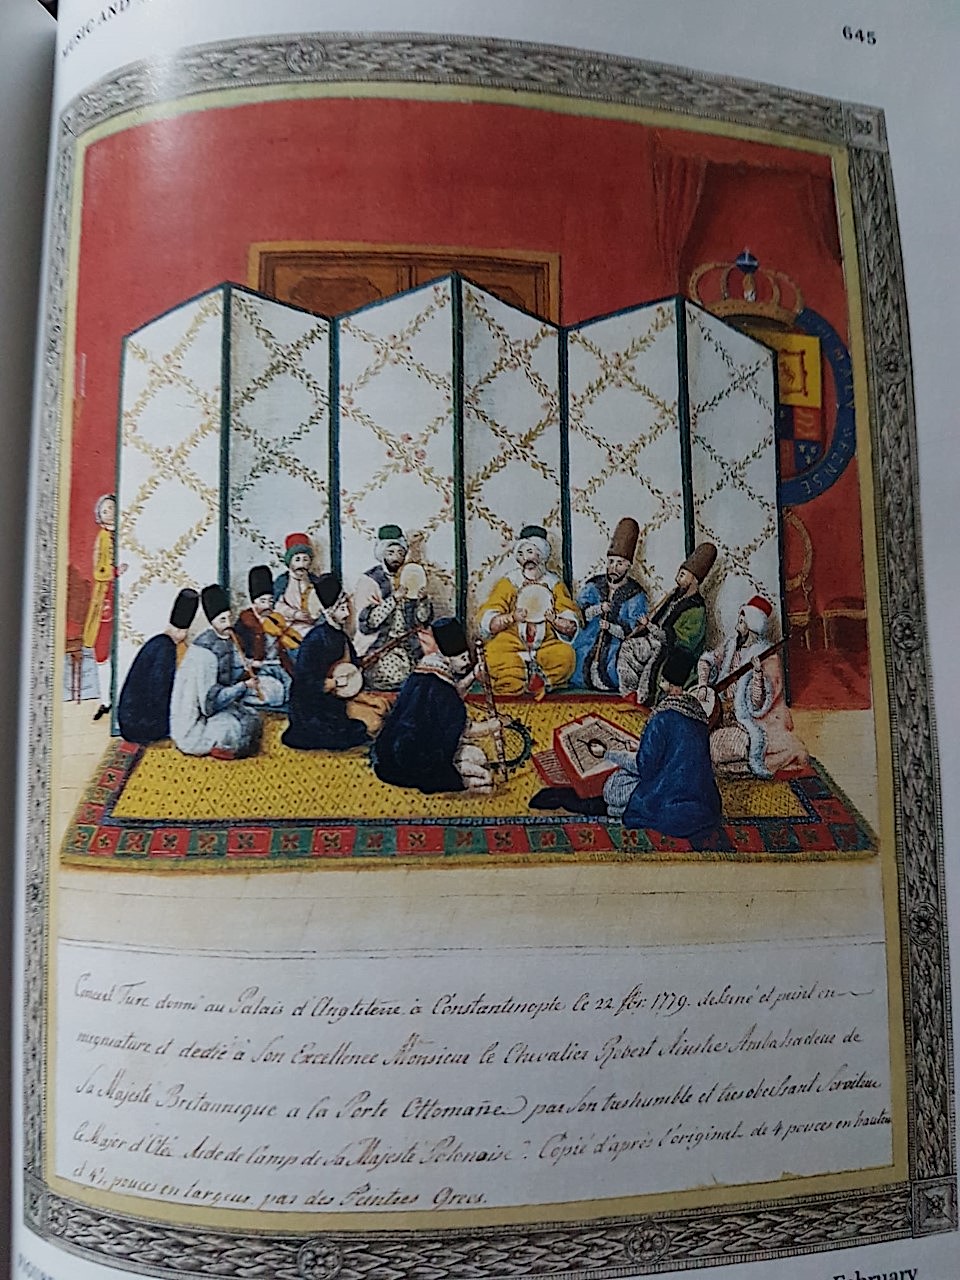 MUSIC AND
645
MAL Y PENSE
Concert Turc donné au Palais d'Angleterre à Constantinople le 22. fbr. 1779. dessiné et peint en
migniature et dedié à Son Excellence Monsieur le Chevalier Robert Ainslie Ambassadeur de
Sa Majesté Britannique a la Porte Ottomane par Son tres humble et tres obeissant Serviteur
le Major d'Otée Aide de Camp de Sa Majesté Polonaise. Copié d'après l'original de 4 pouces en hauteur
et 4½ pouces en largeur par des Peintres Grecs.
February